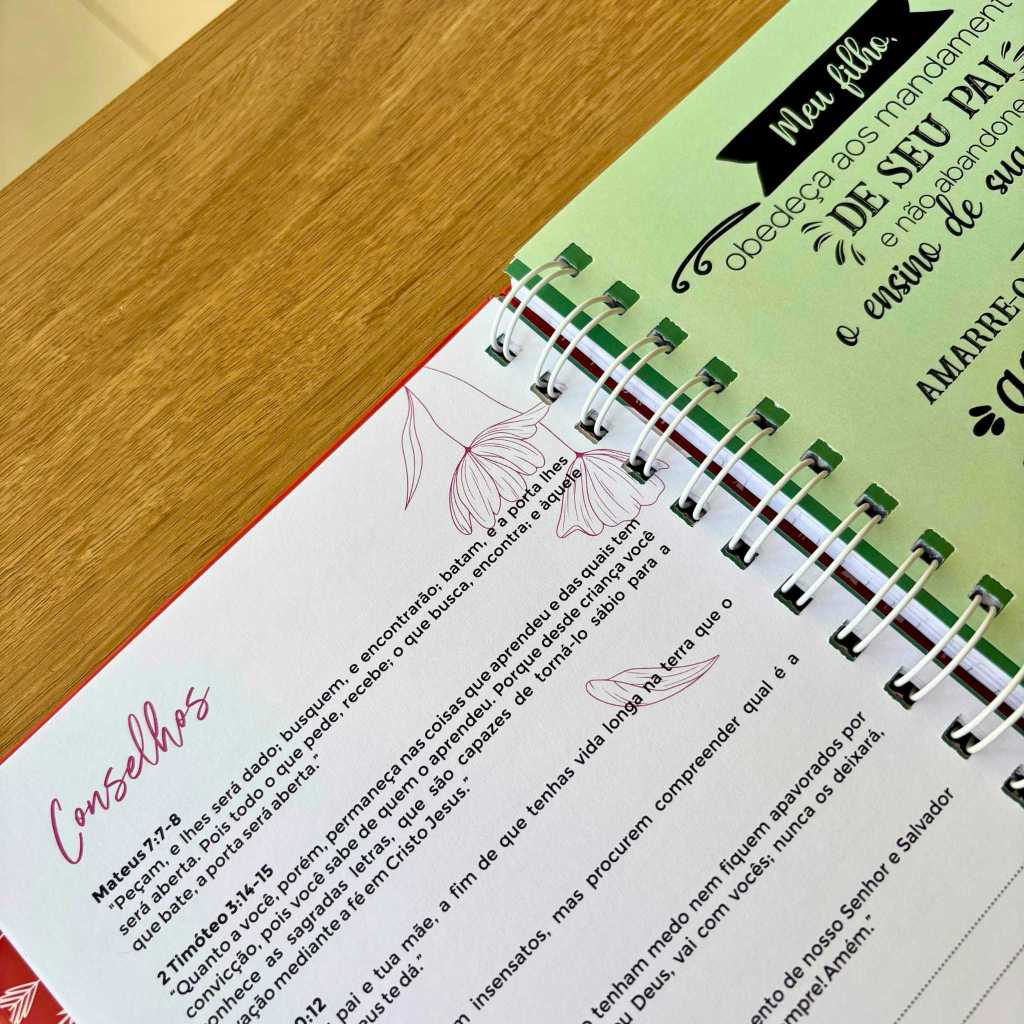 Conselhos
Mateus 7:7-8
"Peçam, e lhes será dado; busquem, e encontrarão; batam, e a porta lhes
será aberta. Pois todo o que pede, recebe; o que busca, encontra; e àquele
que bate, a porta será aberta."
2 Timóteo 3:14-15
"Quanto a você, porém, permaneça nas coisas que aprendeu e das quais tem
convicção, pois você sabe de quem o aprendeu. Porque desde criança você
onhece as sagradas letras, que são capazes de torná-lo sábio para a
vação mediante a fé em Cristo Jesus."
0:12
pai e tua mãe, a fim de que tenhas vida longa na terra que o
eus te dá."
m insensatos, mas procurem compreender qual é a
tenham medo nem fiquem apavorados por
u Deus, vai com vocês; nunca os deixará,
ento de nosso Senhor e Salvador
mpre! Amém."
Meu filho,
obedeça aos mandament
DE SEU PAI
e não abandone
o ensino de sua
AMARRE-O